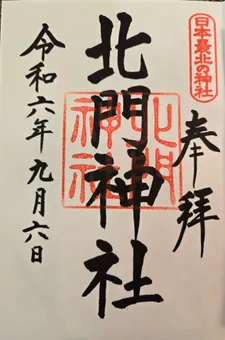 日本最北の神社
奉拝
北門神社
北門神社
令和六年九月六日